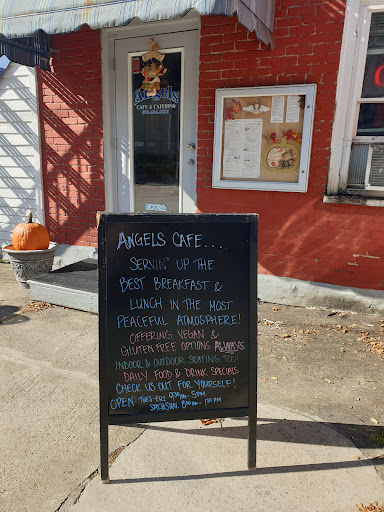 Angels
CAFE & CATERING
HOURS:
ANGELS CAFE....
SERVIN' UP THE
BEST BREAKFAST &
LUNCH IN THE MOST
PEACEFUL ATMOSPHERE!
OFFERING VEGAN &
GLUTEN FREE OPTIONS ALWAYS
INDOOR & OUTDOOR SEATING TOO!
DAILY FOOD & DRINK SPECIALS
CHECK US OUT FOR YOURSELF!
OPEN: TUES-FRI
SAT & SUN